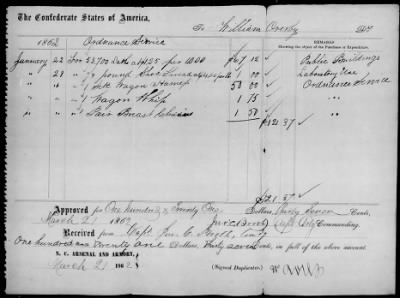 The Confederate States of America,
To William Overby Dr.
1862 Ordnance Service
REMARKS
Showing the object of the Purchase or Expenditure.
January 22 For 53,700 at $1.25 per 1000 $67 12 Public Buildings
" 28 " 1/2 pound Shoe Thread 1 00 Laboratory Use
" " " 1 Sett Wagon Harness 50 00 Ordnance Service
" " " 1 Wagon Whip 1 75 "
" " " 1 Pair Breast Chains 1 50 "
$121 37
$121 37
Approved for One hundred & Twenty One Dollars, Thirty Seven Cents,
March 21 1862 Commanding.
Received from Capt. Jno. C. Booth,
One hundred and twenty one Dollars, thirty seven Cents, in full of the above account
N. C. ARSENAL AND ARMORY,
March 21 1862 (Signed Duplicates.)